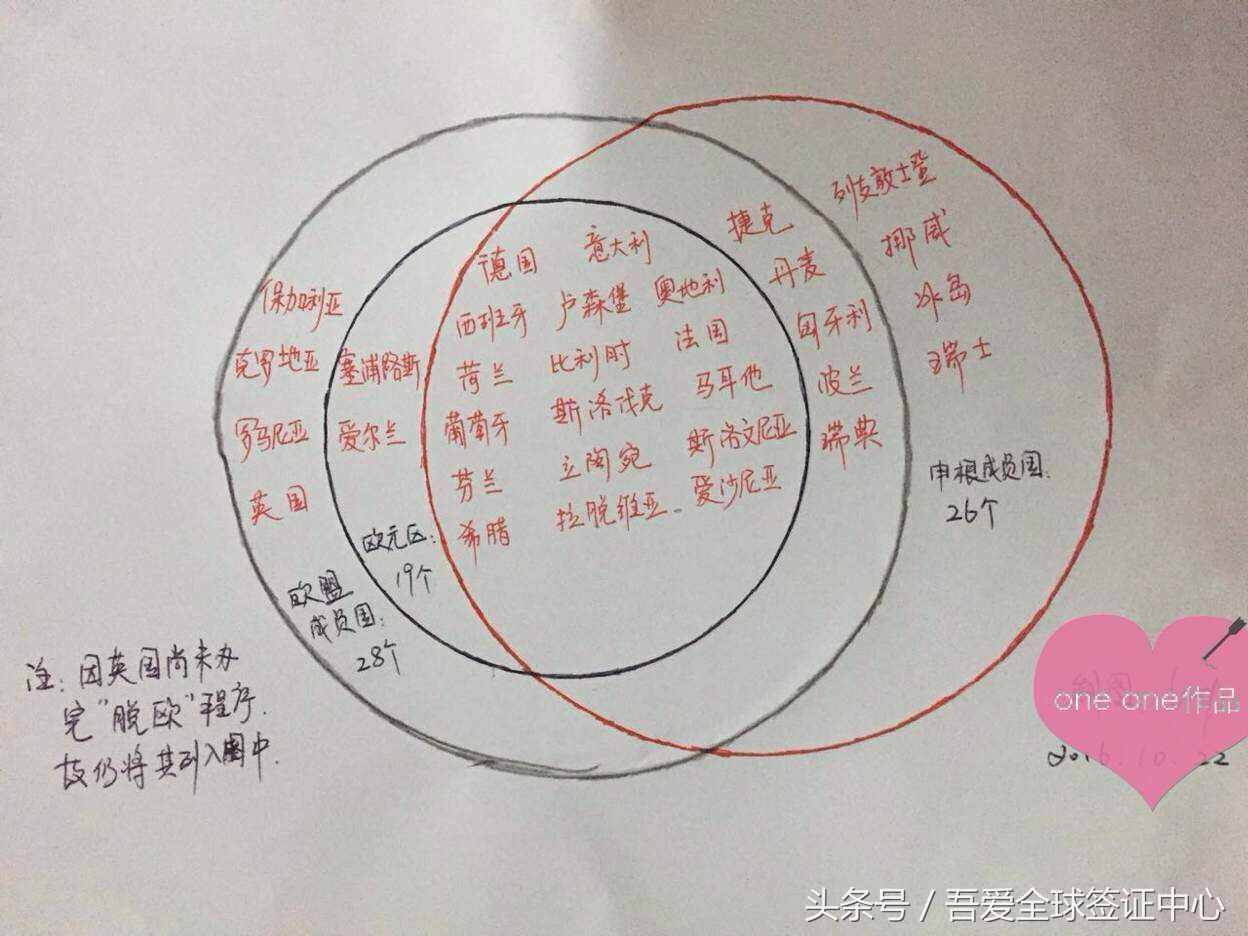 列支敦士登
捷克
挪威
德国 意大利
丹麦
保加利亚
西班牙 卢森堡 奥地利
冰岛
匈牙利
克罗地亚 塞浦路斯
荷兰 比利时 法国
瑞士
波兰
葡萄牙 斯洛伐克 马耳他
罗马尼亚 爱尔兰
瑞典
芬兰 立陶宛 斯洛文尼亚
英国
希腊 拉脱维亚 爱沙尼亚
申根成员国:
26个
欧元区:
19个
欧盟
成员国:
28个
注:因英国尚未办
完"脱欧"程序.
故仍将其列入图中.
one one作品
2016.10.22
头条号/吾爱全球签证中心